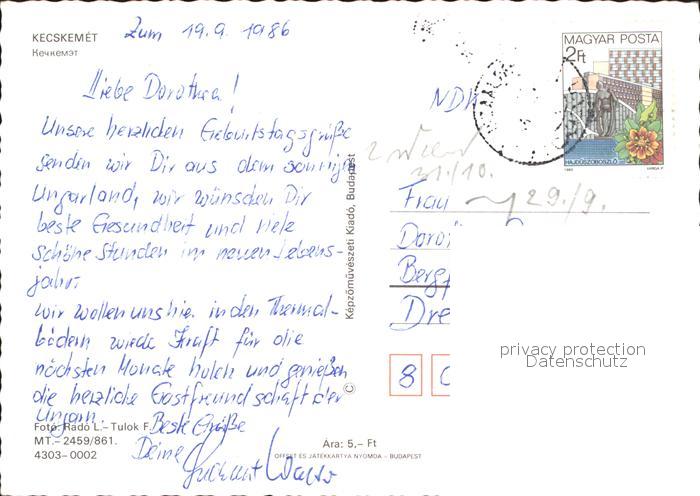 KECSKEMÉT
Кечкемэт
Zum 19.9.1986
Liebe Dorothea!
Unsere herzlichen Geburtstagsgrüße
senden wir Dir aus dem sonnigen
Ungarland, wir wünschen Dir
beste Gesundheit und viele
schöne Stunden im neuen Lebens-
jahr.
Wir wollen uns hier in den Thermal-
bädern wieder Kraft für die
nächsten Monate holen und genießen
die herzliche Gastfreundschaft der
Ungarn.
Beste Grüße
Deine
Fotó: Radó L.- Tulok F.
MT.- 2459/861.
4303-0002
Képzőművészeti Kiadó, Budapest
©
Ára: 5,- Ft
OFFSET ÉS JÁTÉKKARTYA NYOMDA - BUDAPEST
MAGYAR POSTA
2Ft
HAJDÚSZOBOSZLÓ
1985 VARGA P.
31./10.
29./9.
Frau
Doro
Berg
Dre
8
privacy protection
Datenschutz